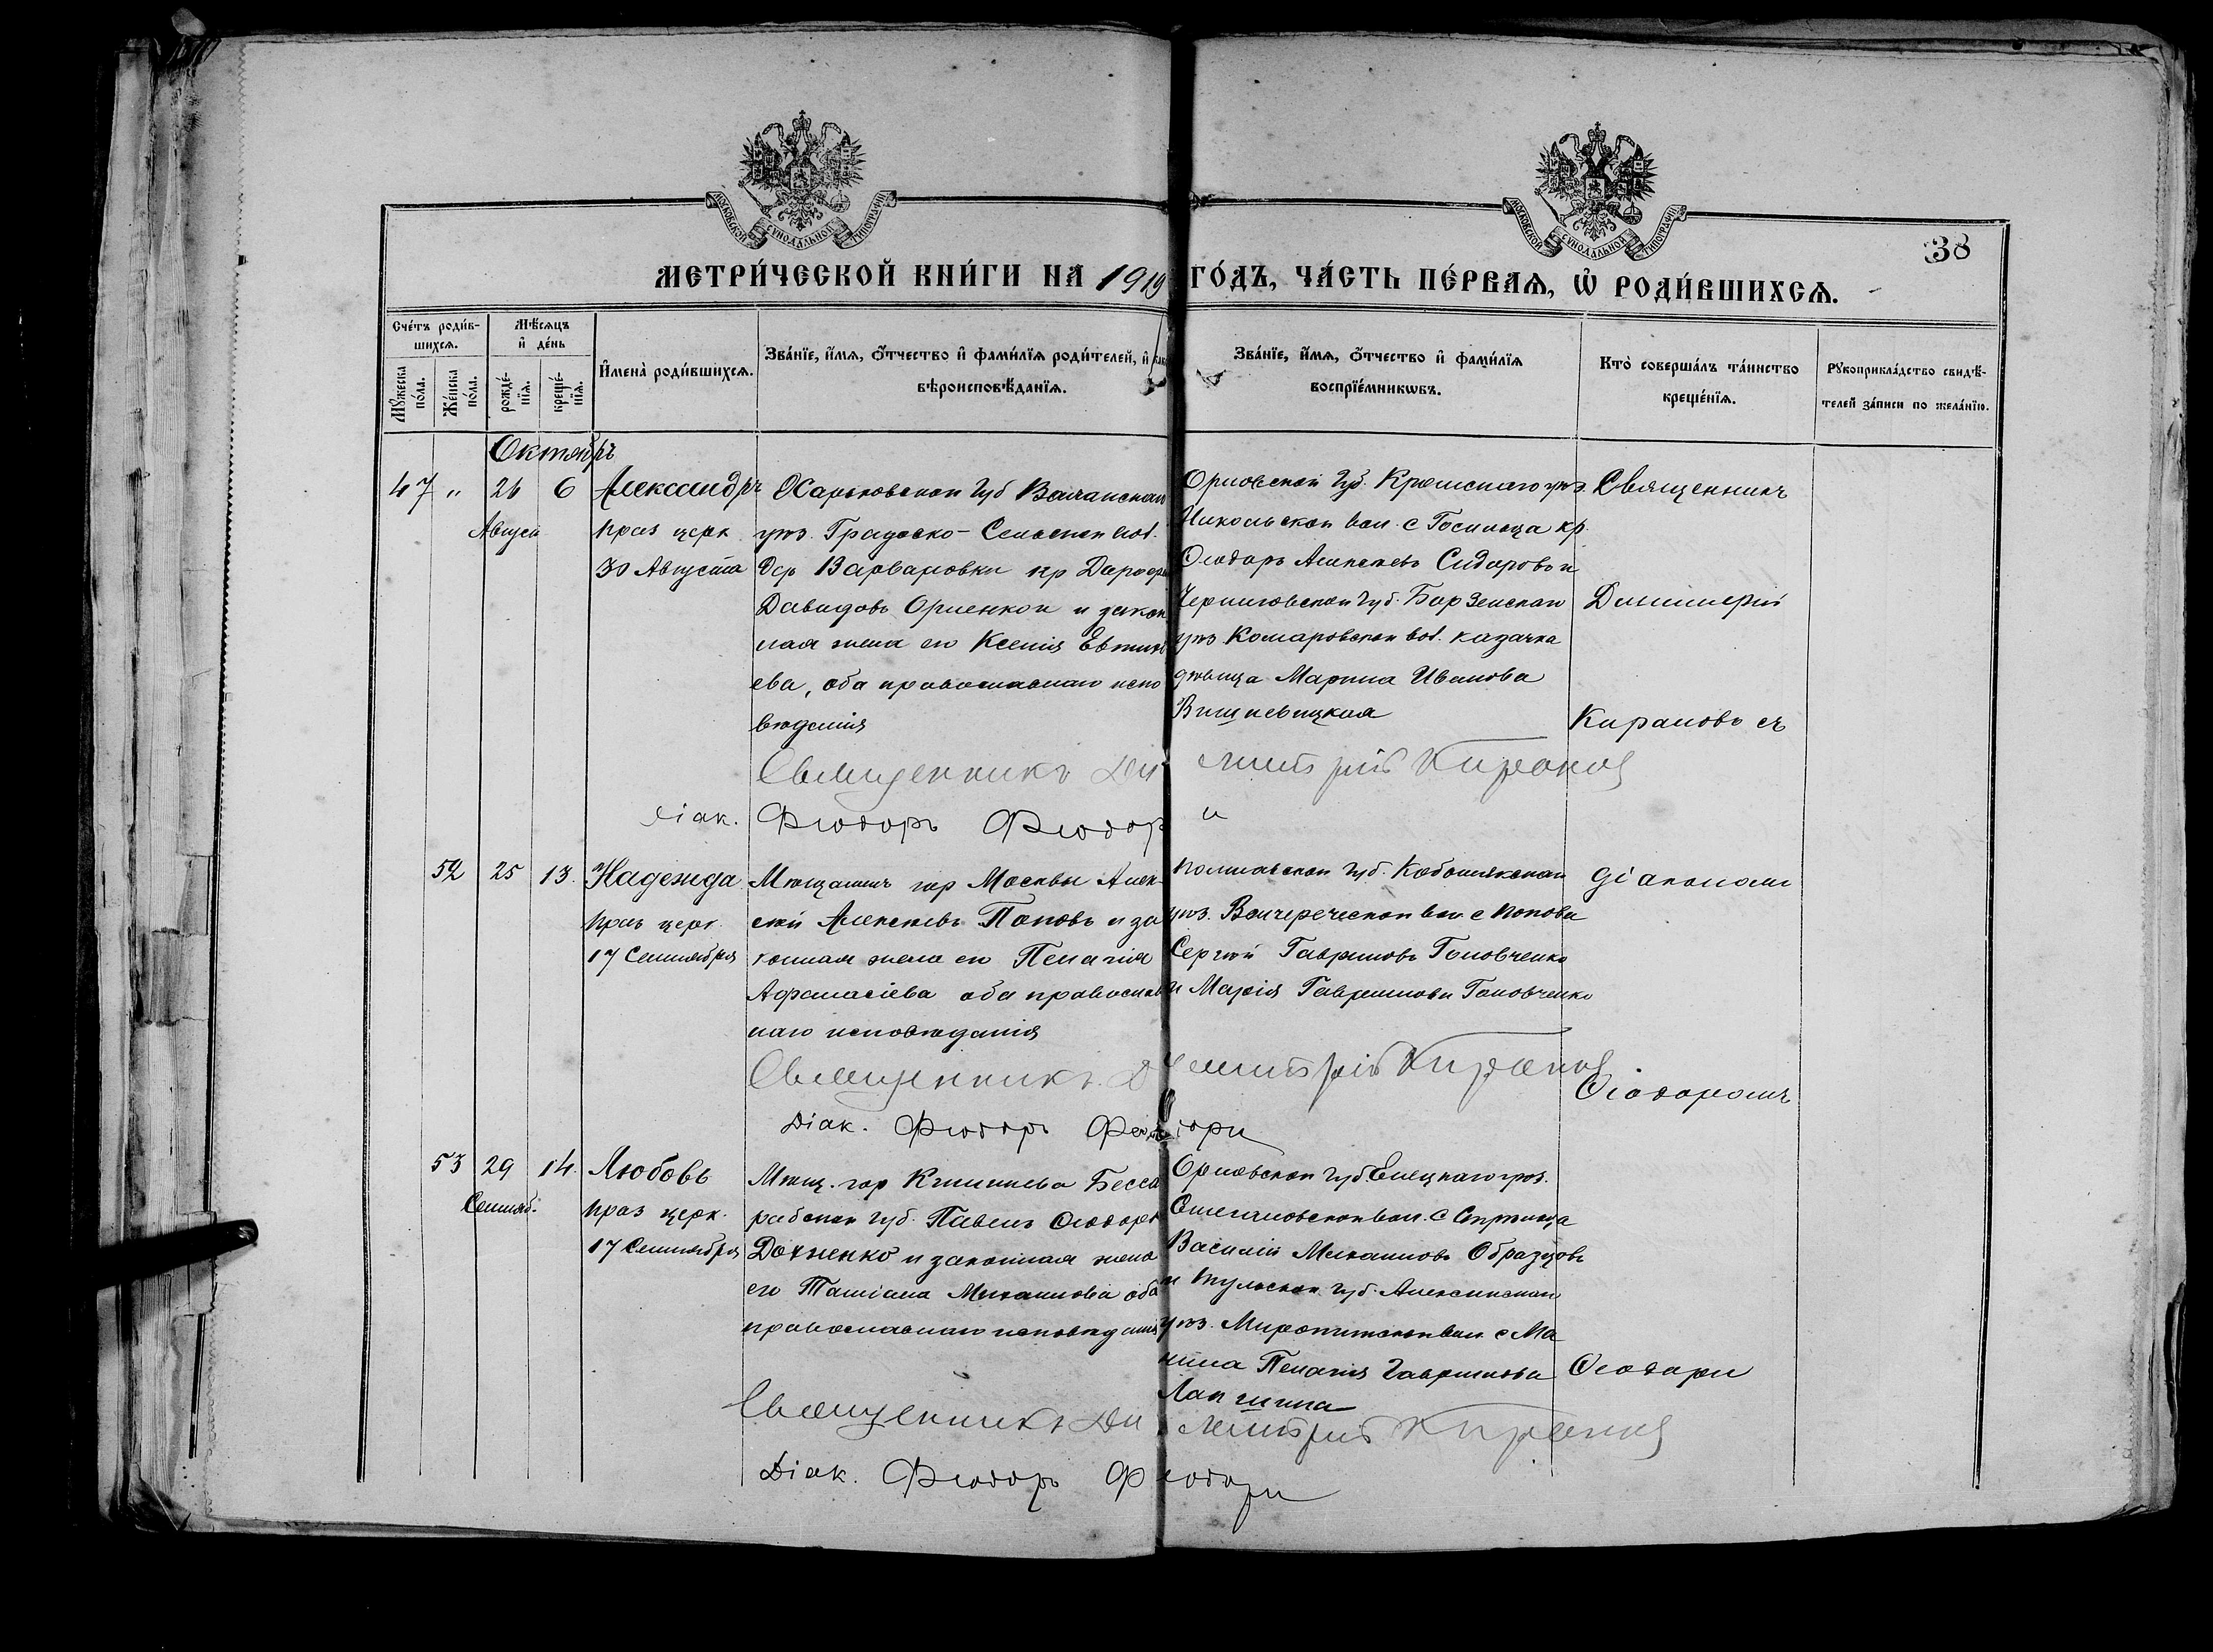 МОСКОВСКОЙ СУНОДАЛЬНОЙ ТИПОГРАФІИ
МОСКОВСКОЙ СУНОДАЛЬНОЙ ТИПОГРАФІИ
38
МЕТРИ́ЧЕСКОЙ КНИ́ГИ НА 1919 ГО́ДЪ, ЧА́СТЬ ПЕ́РВАѦ, Ѡ РОДИ́ВШИХСѦ.
Сче́тъ роди́в-
шихсѧ.
Мꙋ́жеска по́ла.
Же́нска по́ла.
Мѣ́сѧцъ и де́нь
рожде́-нїѧ.
креще́-нїѧ.
Имена̀ роди́вшихсѧ.
Зва́нїе, и́мѧ, ѻ́тчество и фами́лїѧ роди́телей, и
вѣроисповѣ́данїѧ.
Зва́нїе, и́мѧ, ѻ́тчество и фами́лїѧ
воспрїе́мникѡвъ.
Кто̀ соверша́лъ та́инство
креще́нїѧ.
Рꙋкоприкла́дство свидѣ́-
телей за́писи по жела́нїю.
Октябрь
47 " 26 6 Александръ
Август
праз церк
30 Августа
Харьковской губ Валчанскаго
уѣз. Градско-Сельской вол.
Дер Варваровки кр
Давидовъ Орленко и закон
ная жена его Ксенія Евтихі
ева, оба православнаго испо
вѣданія
Орловской губ. Кромскаго уѣз.
Никольской вол. с Гостомля кр.
Ѳеодоръ Алексѣевъ Сидоровъ и
Черниговской губ. Борзенскаго
уѣз. Комаровской вол. казачка
дѣвица Марина Иванова
Вишневицкая
Священникъ
Димитрій
Кирановъ съ
Священникъ Димитрій Кирановъ
діак. Фіодоръ Фіодори
52 25 13. Надежда
праз церк.
17 Сентября
Мѣщанинъ гор Москвы Алек-
сѣй Алексѣевъ Поповъ и за
конная жена его Пелагія
Афанасіева оба православ
наго исповѣданія
Полтавской губ. Кобеликскаго
уѣз. вол. с Попова
Сергѣй Гавриловъ Головченко
и Марія Гаврилова Головченко
діакономъ
Ѳіодоромъ
Священникъ Димитрій Кирановъ
Діак. Фіодоръ Фіодори
53 29 14. Любовь
Сентяб.
праз церк.
17 Сентября
Мѣщ. гор Кишинева Бесса
рабской губ. Павелъ Ѳіодоровъ
Дохненко и законная жена
его Татіана Михаилова оба
православнаго исповѣданія
Орловской губ Елецкаго уѣз.
вол. с
Василій Михаиловъ Образцовъ
и Тульской губ. Алексинскаго
уѣз. вол. с
Пелагія Гаврилова
Лапшина
Ѳеодори
Священникъ Димитрій Кирановъ
Діак. Фіодоръ Фіодори